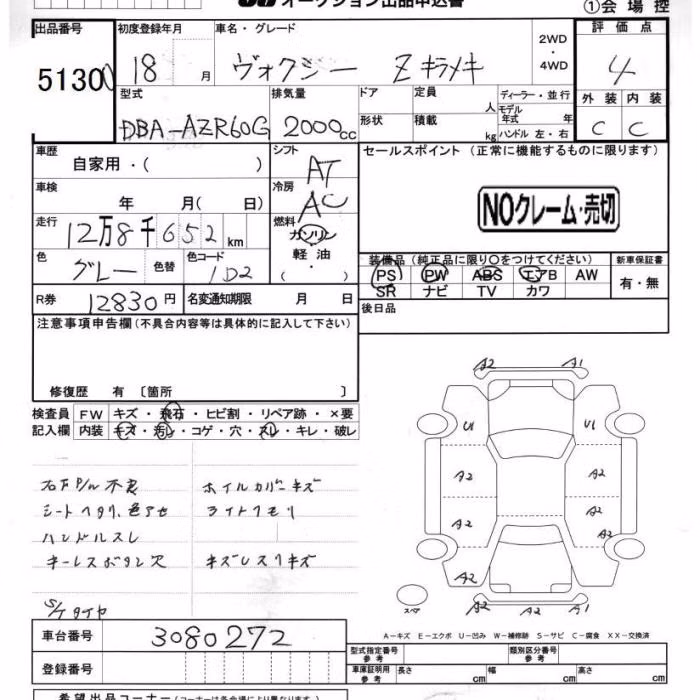 オークション出品申込書
①会場控
出品番号 初度登録年月 車名・グレード 2WD・4WD 評価点
5130 18 月 ヴォクシー Z キラメキ 4
型式 排気量 ドア 定員 人 ディーラー・並行 外装 内装
DBA-AZR60G 2000cc 形状 積載 kg モデル年式 年 ハンドル 左・右 C C
車歴 シフト セールスポイント(正常に機能するものに限ります)
自家用・( ) AT
車検 冷房
年 月( 日) AC NOクレーム・売切
走行 燃料
12万8千652km ガソリン
軽油
・( )
色 色替 色コード 装備品(純正品に限り○をつけてください) 新車保証書
グレー 1D2 PS PW ABS エアB AW 有・無
SR ナビ TV カワ
R券 12830円 名変通知期限 月 日 後日品
注意事項申告欄(不具合内容等は具体的に記入して下さい)
修復歴 有 〔箇所 〕
検査員 FW キズ・飛石・ヒビ割・リペア跡・×要
記入欄 内装 キズ・汚レ・コゲ・穴・スレ・キレ・破レ
ホイルカバーキズ
シートヘタリ、色アセ ライトクモリ
ハンドルスレ
キーレスボタン穴 キズレスリキズ
S/Tタイヤ
A2 A1
U1 U1
A2 A2
A2 A2
A2
A2
スペア A2 A2 A1
A-キズ E-エクボ U-凹み W-補修跡 S-サビ C-腐食 XX-交換済
車台番号 3080272
型式指定番号 参考 類別区分番号 参考
登録番号 車庫証明用 参考 長さ cm 幅 cm 高さ cm
希望出品コーナー(コーナーは各会場により異なります)